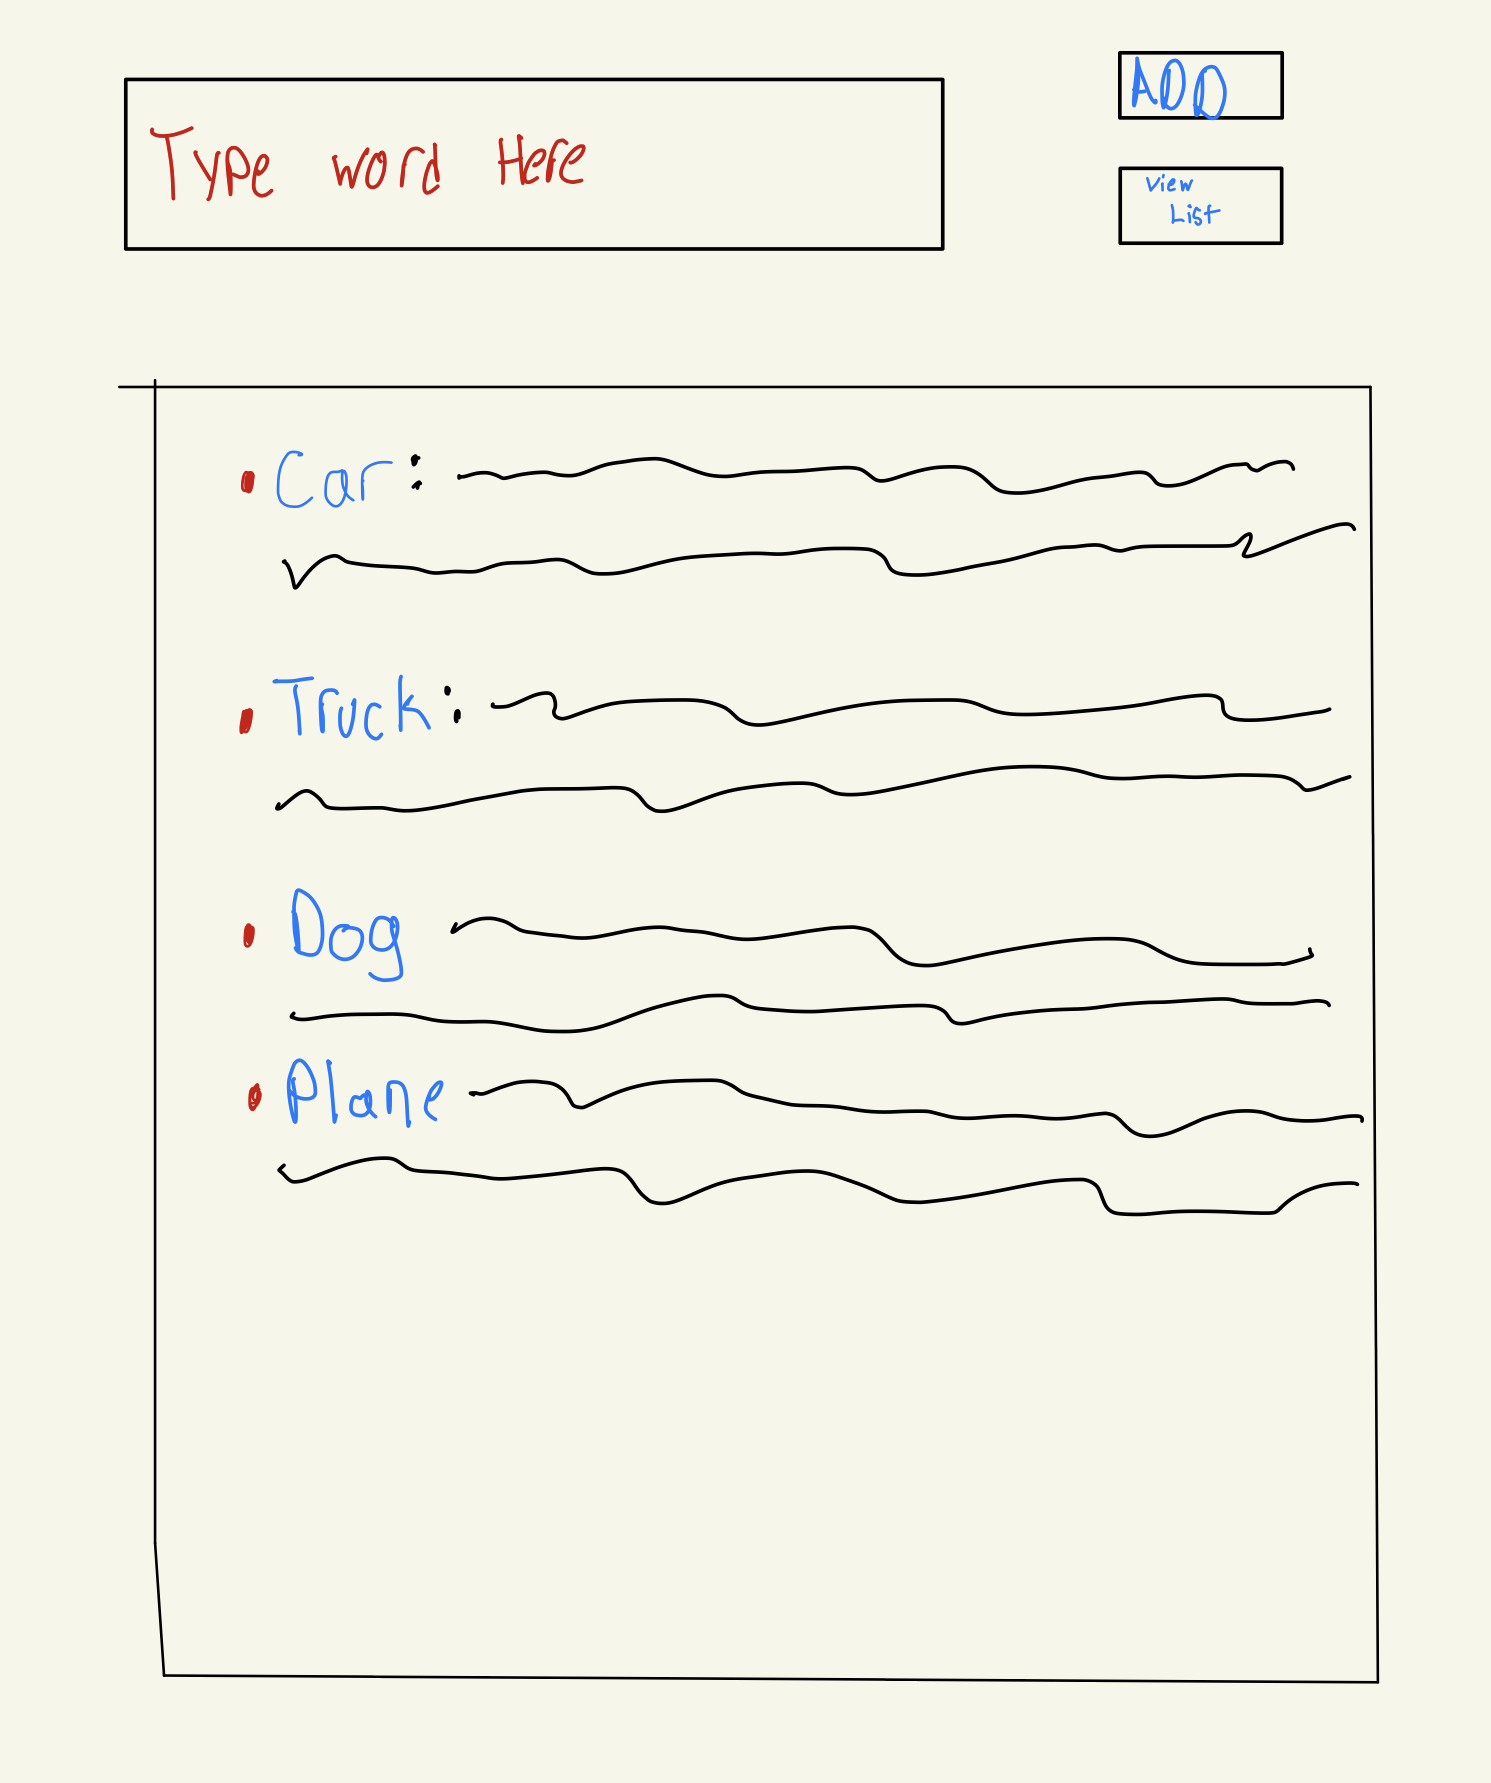 Type word Here
ADD
View
List
Car:
Truck:
Dog
Plane